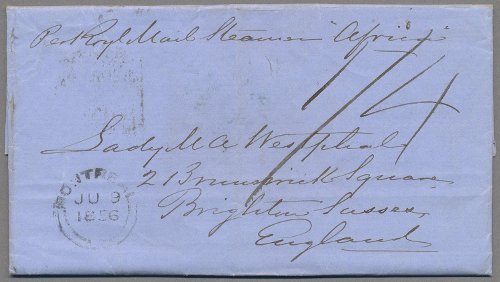 Per Royl Mail Steamer "Africa"
1/4
Lady M A Westphal
2 Brunswick Square
Brighton Sussex
England
MONTREAL
JU 9
1856